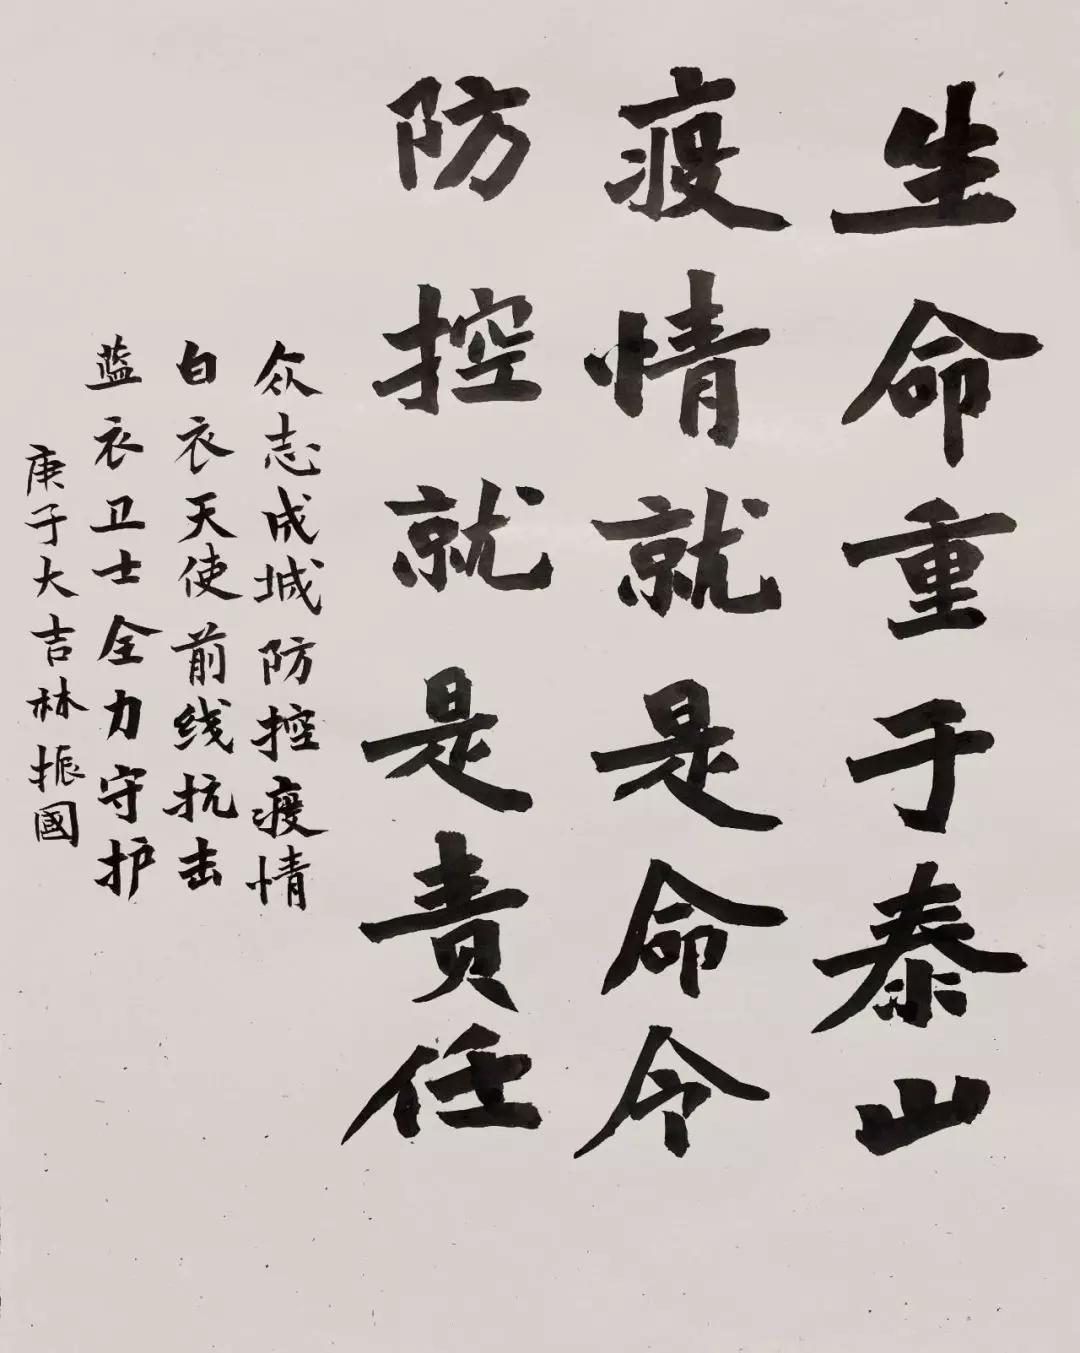 生命重于泰山
疫情就是命令
防控就是责任
众志成城防控疫情
白衣天使前线抗击
蓝衣卫士全力守护
庚子大吉林振國